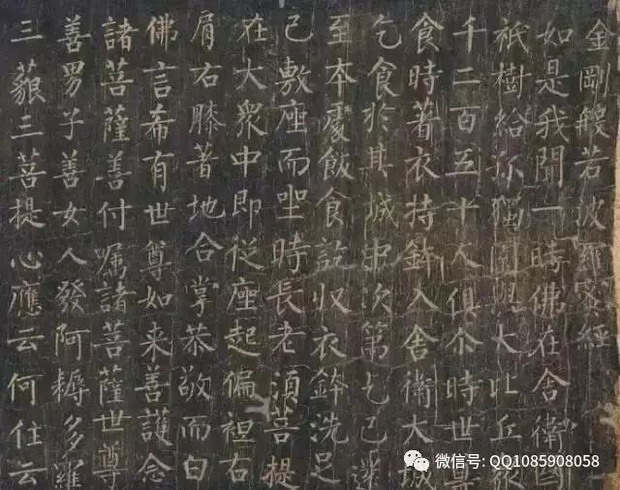 金剛般若波羅蜜經
如是我聞一時佛在舍衛國
祇樹給孤獨園與大比丘衆
千二百五十人俱尒時世尊
食時著衣持鉢入舍衛大城
乞食於其城中次第乞已還
至本處飯食訖収衣鉢洗足
已敷座而坐時長老湏菩提
在大衆中即從座起偏袒右
肩右膝著地合掌恭敬而白
佛言希有世尊如来善護念
諸菩薩善付嘱諸菩薩世尊
善男子善女人發阿耨多羅
三藐三菩提心應云何住云
微信号: QQ1085908058